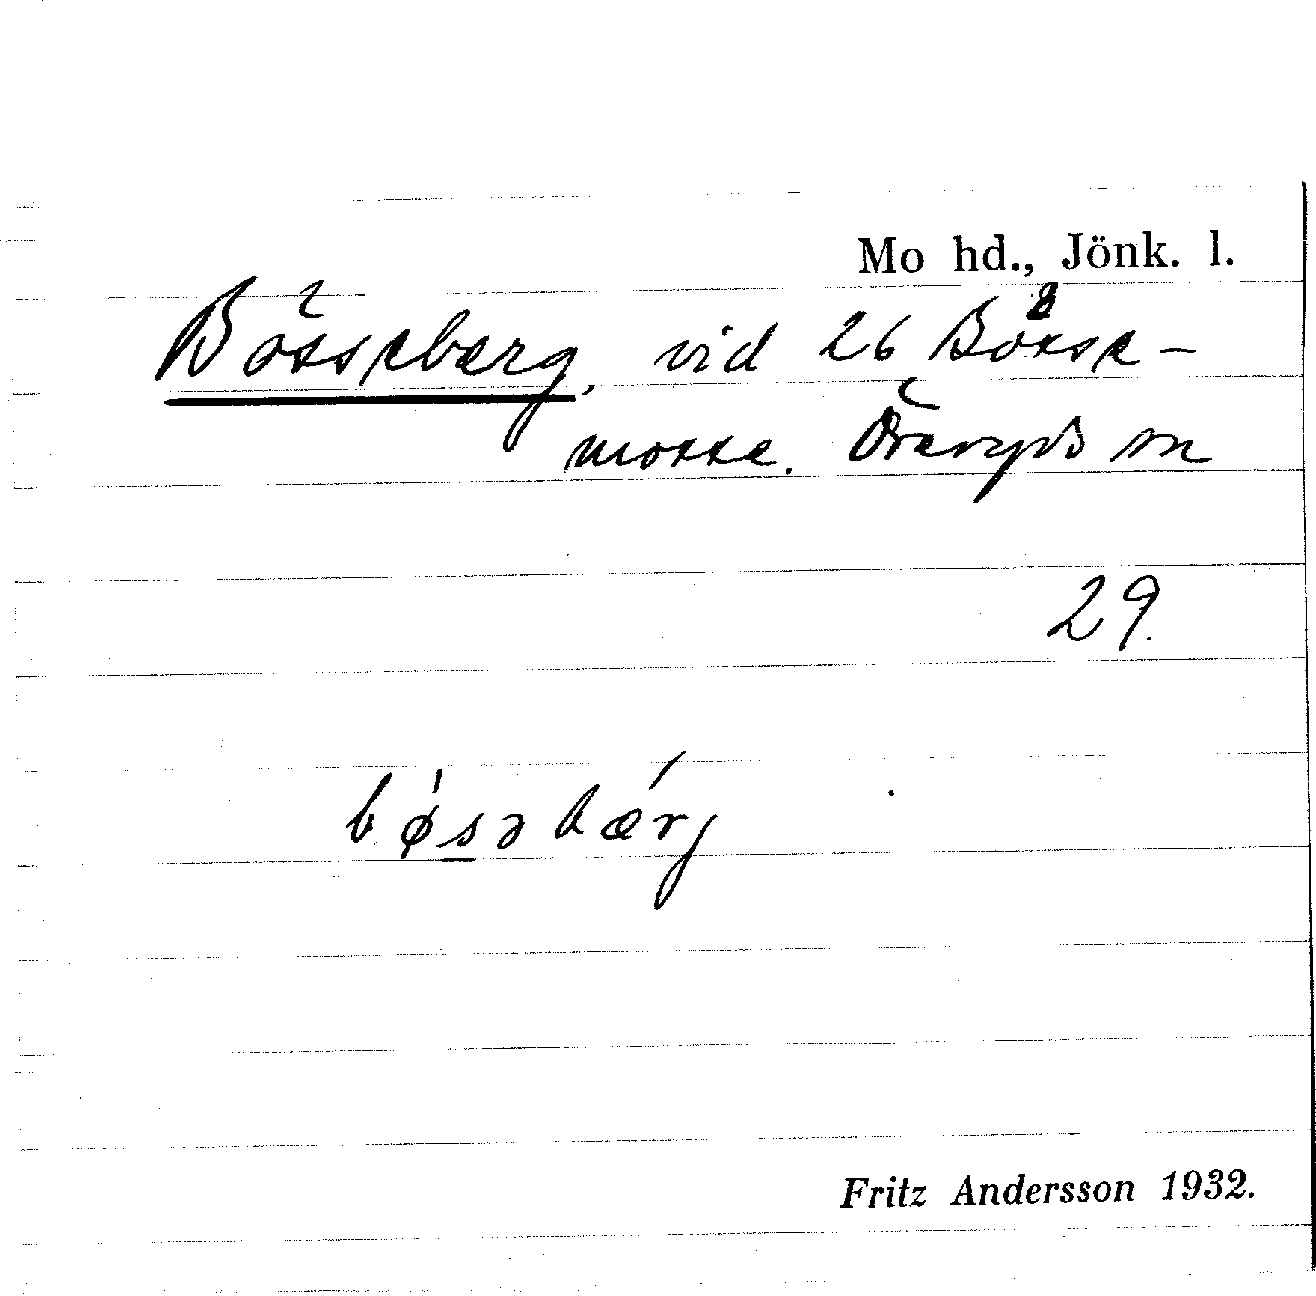 Mo hd., Jönk. l.
Bösseberg, vid 26 Bösse-
mosse. Öreryds sn
29.
bø̍səbærj
Fritz Andersson 1932.